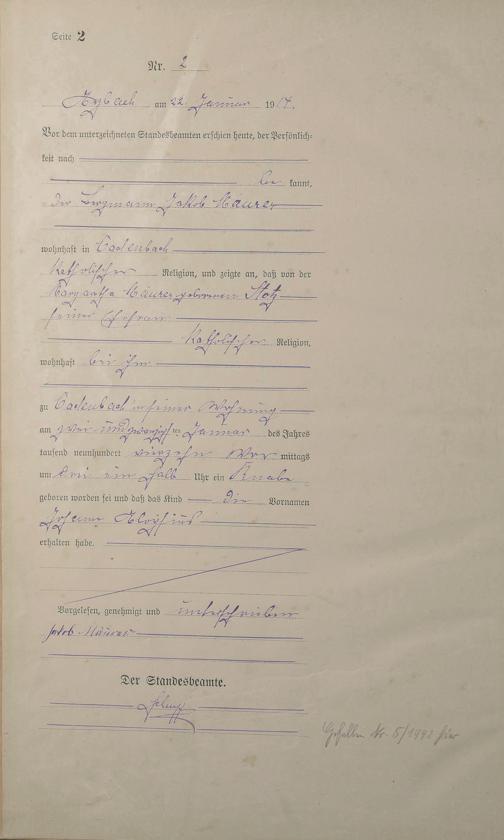 Seite 2
Nr. 2
am 22. Januar 1914.
Vor dem unterzeichneten Standesbeamten erschien heute, der Persönlich-
keit nach
be kannt,
der Bergmann Jakob Maurer
wohnhaft in
katholischer Religion, und zeigte an, daß von der
Margaretha Maurer geborenen Stotz
seiner Ehefrau
katholischer Religion,
wohnhaft bei ihm
zu in seiner Wohnung
am zwei und zwanzigsten Januar des Jahres
tausend neunhundert vierzehn Vor mittags
um drei ein halb Uhr ein Knabe
geboren worden sei und daß das Kind die Vornamen
Johann Aloysius
erhalten habe.
Vorgelesen, genehmigt und unterschrieben
Jakob Maurer
Der Standesbeamte.
Gefallen Nr. 5/1942 hier